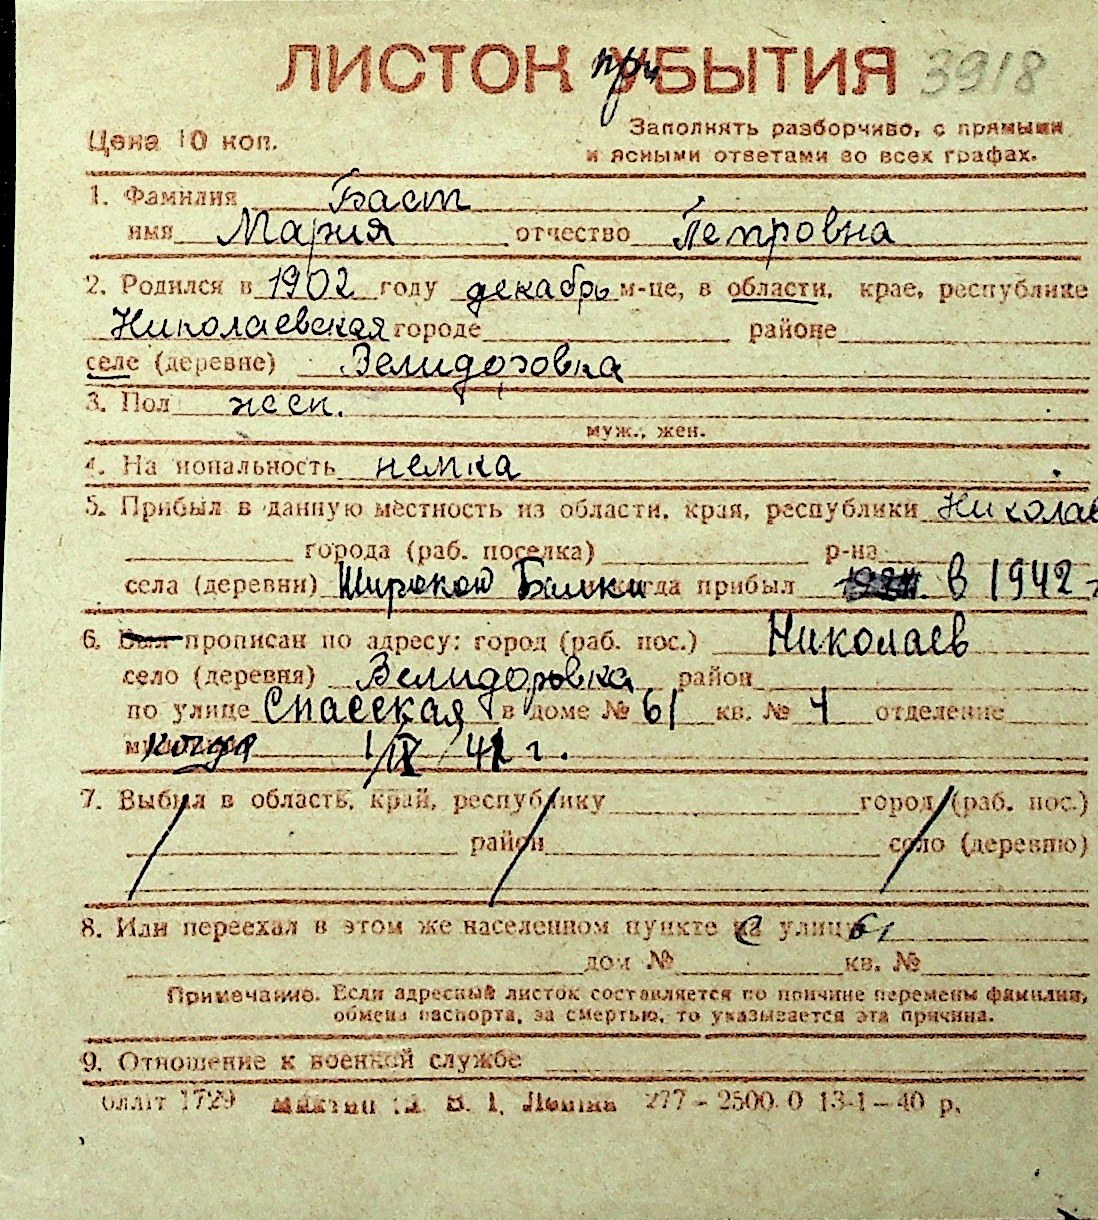 ЛИСТОК при УБЫТИЯ 3918
Цена 10 коп.
Заполнять разборчиво, с прямыми
и ясными ответами во всех графах.
1. Фамилия Баст
имя Мария отчество Петровна
2. Родился в 1902 году декабрь м-це, в области, крае, республике
Николаевская городе районе
селе (деревне) Велидоровка
3. Пол жен.
муж., жен.
4. На иональность немка
5. Прибыл в данную местность из области, края, республики Николаев
города (раб. поселка) р-на
села (деревни) Широкою Балки когда прибыл в 1942 г
6. Был прописан по адресу: город (раб. пос.) Николаев
село (деревня) Велидоровка район
по улице Спасская в доме № 61 кв. № 4 отделение
когда 1/IX 41 г.
7. Выбыл в область, край, республику город (раб. пос.)
район село (деревню)
8. Или переехал в этом же населенном пункте с улицы
дом № кв. №
Примечание. Если адресный листок составляется по причине перемены фамилии,
обмена паспорта, за смертью, то указывается эта причина.
9. Отношение к военной службе
блліт 1729 277 – 2500.0 13-1 – 40 р.